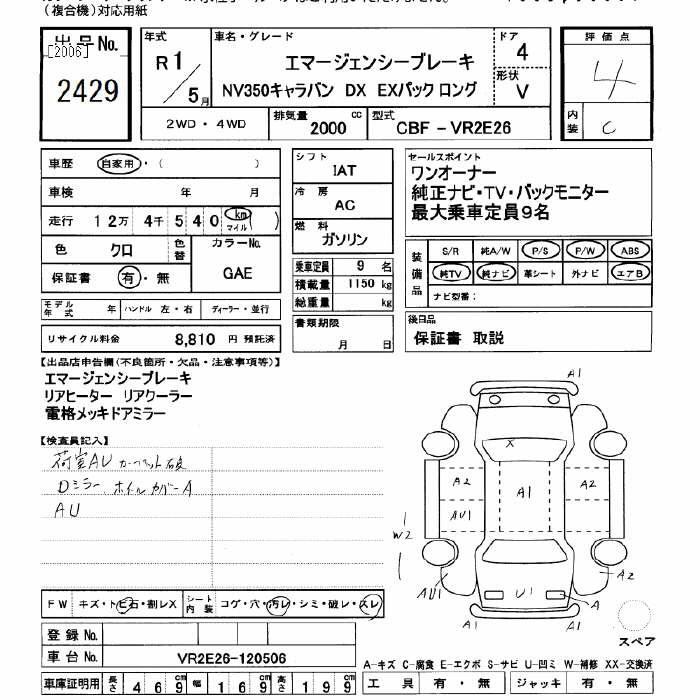 (複合機)対応用紙
出品No.
[2006]
2429
年式
R1/5月
車名・グレード
エマージェンシーブレーキ
NV350キャラバン DX EXパック ロング
ドア
4
形状
V
評価点
4
内装
C
2WD・4WD
排気量
2000 cc
型式
CBF-VR2E26
車歴 自家用・( )
車検 年 月
走行 12万4千540 km マイル ( )
色 クロ
色替
カラーNo.
GAE
保証書 有・無
モデル年式 年
ハンドル 左・右
ディーラー・並行
リサイクル料金 8,810 円 預託済
シフト
IAT
冷房
AC
燃料
ガソリン
乗車定員 9 名
積載量 1150 kg
総重量 kg
書類期限
月 日
セールスポイント
ワンオーナー
純正ナビ・TV・バックモニター
最大乗車定員9名
装備品
S/R 純A/W P/S P/W ABS
純TV 純ナビ 革シート 外ナビ エアB
ナビ型番:
後日品
保証書 取説
【出品店申告欄(不良箇所・欠品・注意事項等)】
エマージェンシーブレーキ
リアヒーター リアクーラー
電格メッキドアミラー
【検査員記入】
荷室AU カーペット破
Dミラー、ホイルカバーA
AU
A1
X
A2 A1 A2
AU1
W2
AU1 U1 A A2
A1 A1
スペア
FW キズ・トビ石・割レX
シート内装 コゲ・穴・汚レ・シミ・破レ・スレ
登録No.
車台No. VR2E26-120506
車庫証明用 長さ 469cm 幅 169cm 高さ 199cm
A-キズ C-腐食 E-エクボ S-サビ U-凹ミ W-補修 XX-交換済
工具 有・無 ジャッキ 有・無